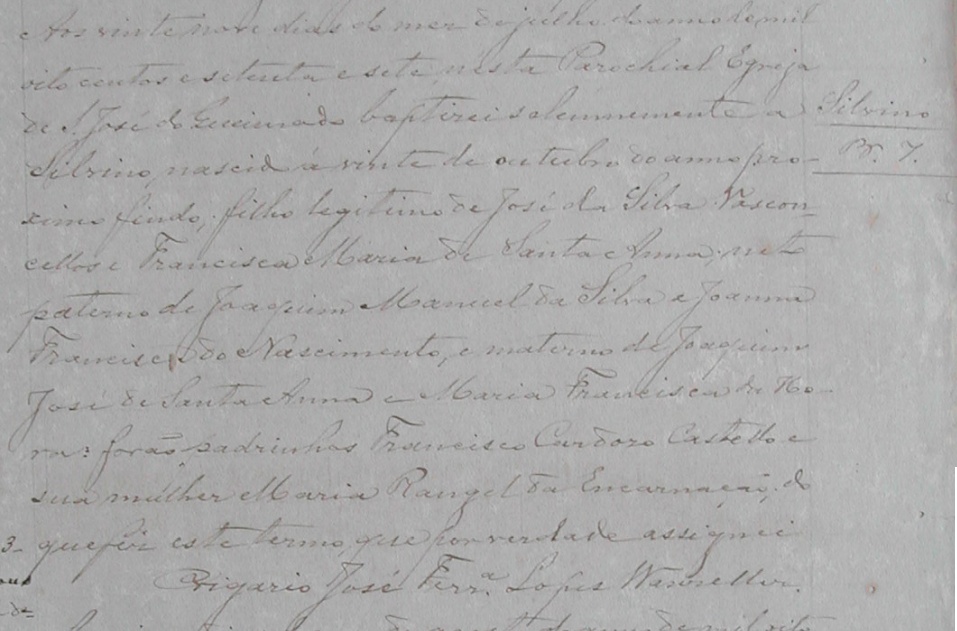 Aos vinte nove dias do mez de julho do anno de mil
oito centos e setenta e sete nesta Parochial Egreja
de S. José do Queimado baptizei solemnemente a
Silvino
Silvino, nascido á vinte de outubro do anno pro-
Br. 7.
ximo findo, filho legitimo de José da Silva Vascon-
cellos e Francisca Maria de Santa Anna; neto
paterno de Joaquim Manuel da Silva e Joanna
Francisca do Nascimento, e materno de Joaquim
José de Santa Anna e Maria Francisca da Ho-
ra: forão padrinhos Francisco Cardozo Castello e
sua mulher Maria Rangel da Encarnação, do
3- que fiz este termo, que por verdade assignei
O Vigario José Ferrª. Lopes